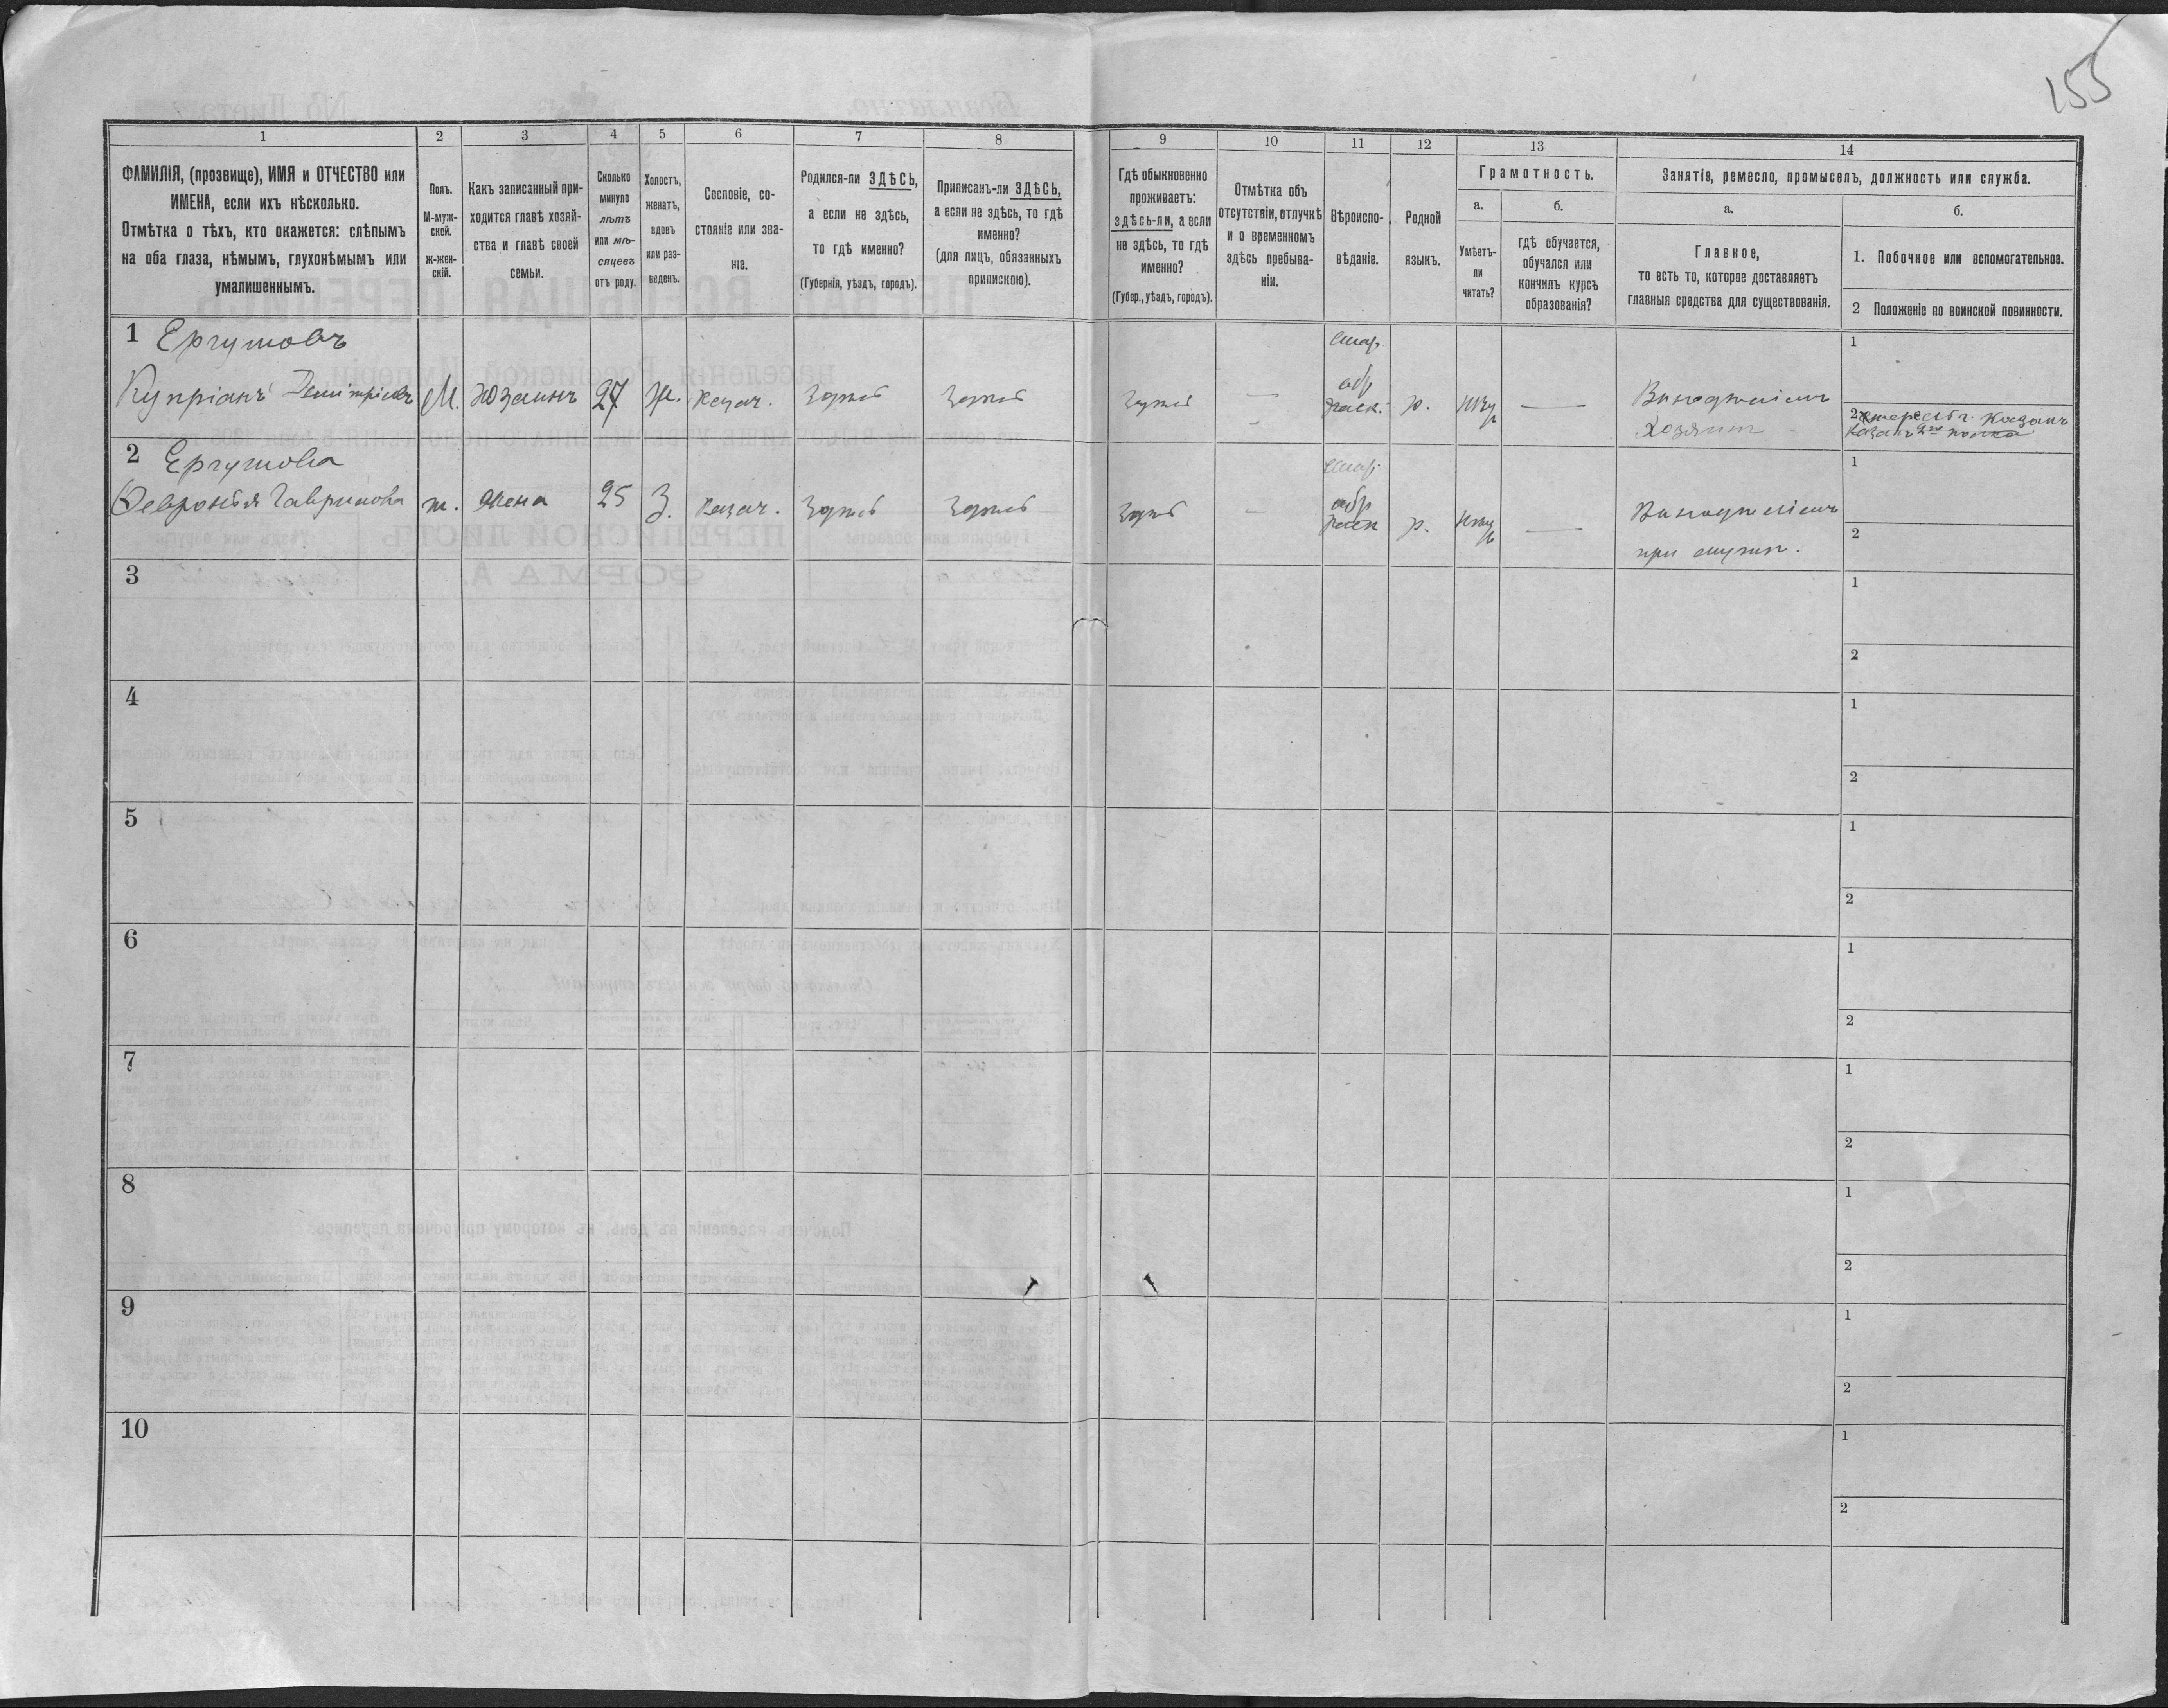 155
1
2
3
4
5
6
7
8
9
10
11
12
13
14
ФАМИЛІЯ, (прозвище), ИМЯ и ОТЧЕСТВО или
ИМЕНА, если ихъ нѣсколько.
Отмѣтка о тѣхъ, кто окажется: слѣпымъ
на оба глаза, нѣмымъ, глухонѣмымъ или
умалишеннымъ.
Полъ.
М-муж-
ской.
ж-жен-
скій.
Какъ записанный при-
ходится главѣ хозяй-
ства и главѣ своей
семьи.
Сколько
минуло
лѣтъ
или мѣ-
сяцевъ
отъ роду.
Холостъ,
женатъ,
вдовъ
или раз-
веденъ.
Сословіе, со-
стояніе или зва-
ніе.
Родился-ли ЗДѢСЬ,
а если не здѣсь,
то гдѣ именно?
(Губернія, уѣздъ, городъ).
Приписанъ-ли ЗДѢСЬ,
а если не здѣсь, то гдѣ
именно?
(для лицъ, обязанныхъ
припискою).
Гдѣ обыкновенно
проживаетъ:
здѣсь-ли, а если
не здѣсь, то гдѣ
именно?
(Губер., уѣздъ, городъ).
Отмѣтка объ
отсутствіи, отлучкѣ
и о временномъ
здѣсь пребыва-
ніи.
Вѣроиспо-
вѣданіе.
Родной
языкъ.
Грамотность.
а.
Умѣетъ-
ли
читать?
б.
гдѣ обучается,
обучался или
кончилъ курсъ
образованія?
Занятіе, ремесло, промыселъ, должность или служба.
а.
Главное,
то есть то, которое доставляетъ
главныя средства для существованія.
б.
1. Побочное или вспомогательное.
2 Положеніе по воинской повинности.
1 Ергушовъ
Купріанъ Демитріевъ М. хозаинъ 27 Ж. Казач. Здѣсь Здѣсь Здѣсь — Стар. обр. р. —
Хозяин
1
2
Казакъ
2 Ергушова
Февронья Гаврилова ж. жена 25 З. Казач. Здѣсь Здѣсь Здѣсь — Стар. обр р. —
при мужѣ.
1
2
3
1
2
4
1
2
5
1
2
6
1
2
7
1
2
8
1
2
9
1
2
10
1
2